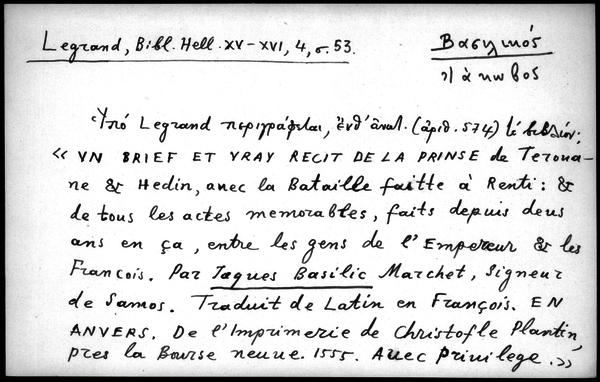 Legrand, Bibl. Hell. XV-XVI, 4, σ. 53.
Βασιλικός
Ἰάκωβος
Ὑπό Legrand περιγράφεται, ἐνθ' ἀνωτ. (ἀριθ. 574) τό βιβλίον:
« VN BRIEF ET VRAY RECIT DE LA PRINSE de Teroua-
ne & Hedin, auec la Bataille faitte à Renti: &
de tous les actes memorables, faits depuis deus
ans en ça, entre les gens de l'Empereur & les
François. Par Jaques Basilic Marchet, Signeur
de Samos. Traduit de Latin en François. EN
ANVERS. De l'Imprimerie de Christofle Plantin,
pres la Bourse neuue. 1555. Auec Priuilege.»